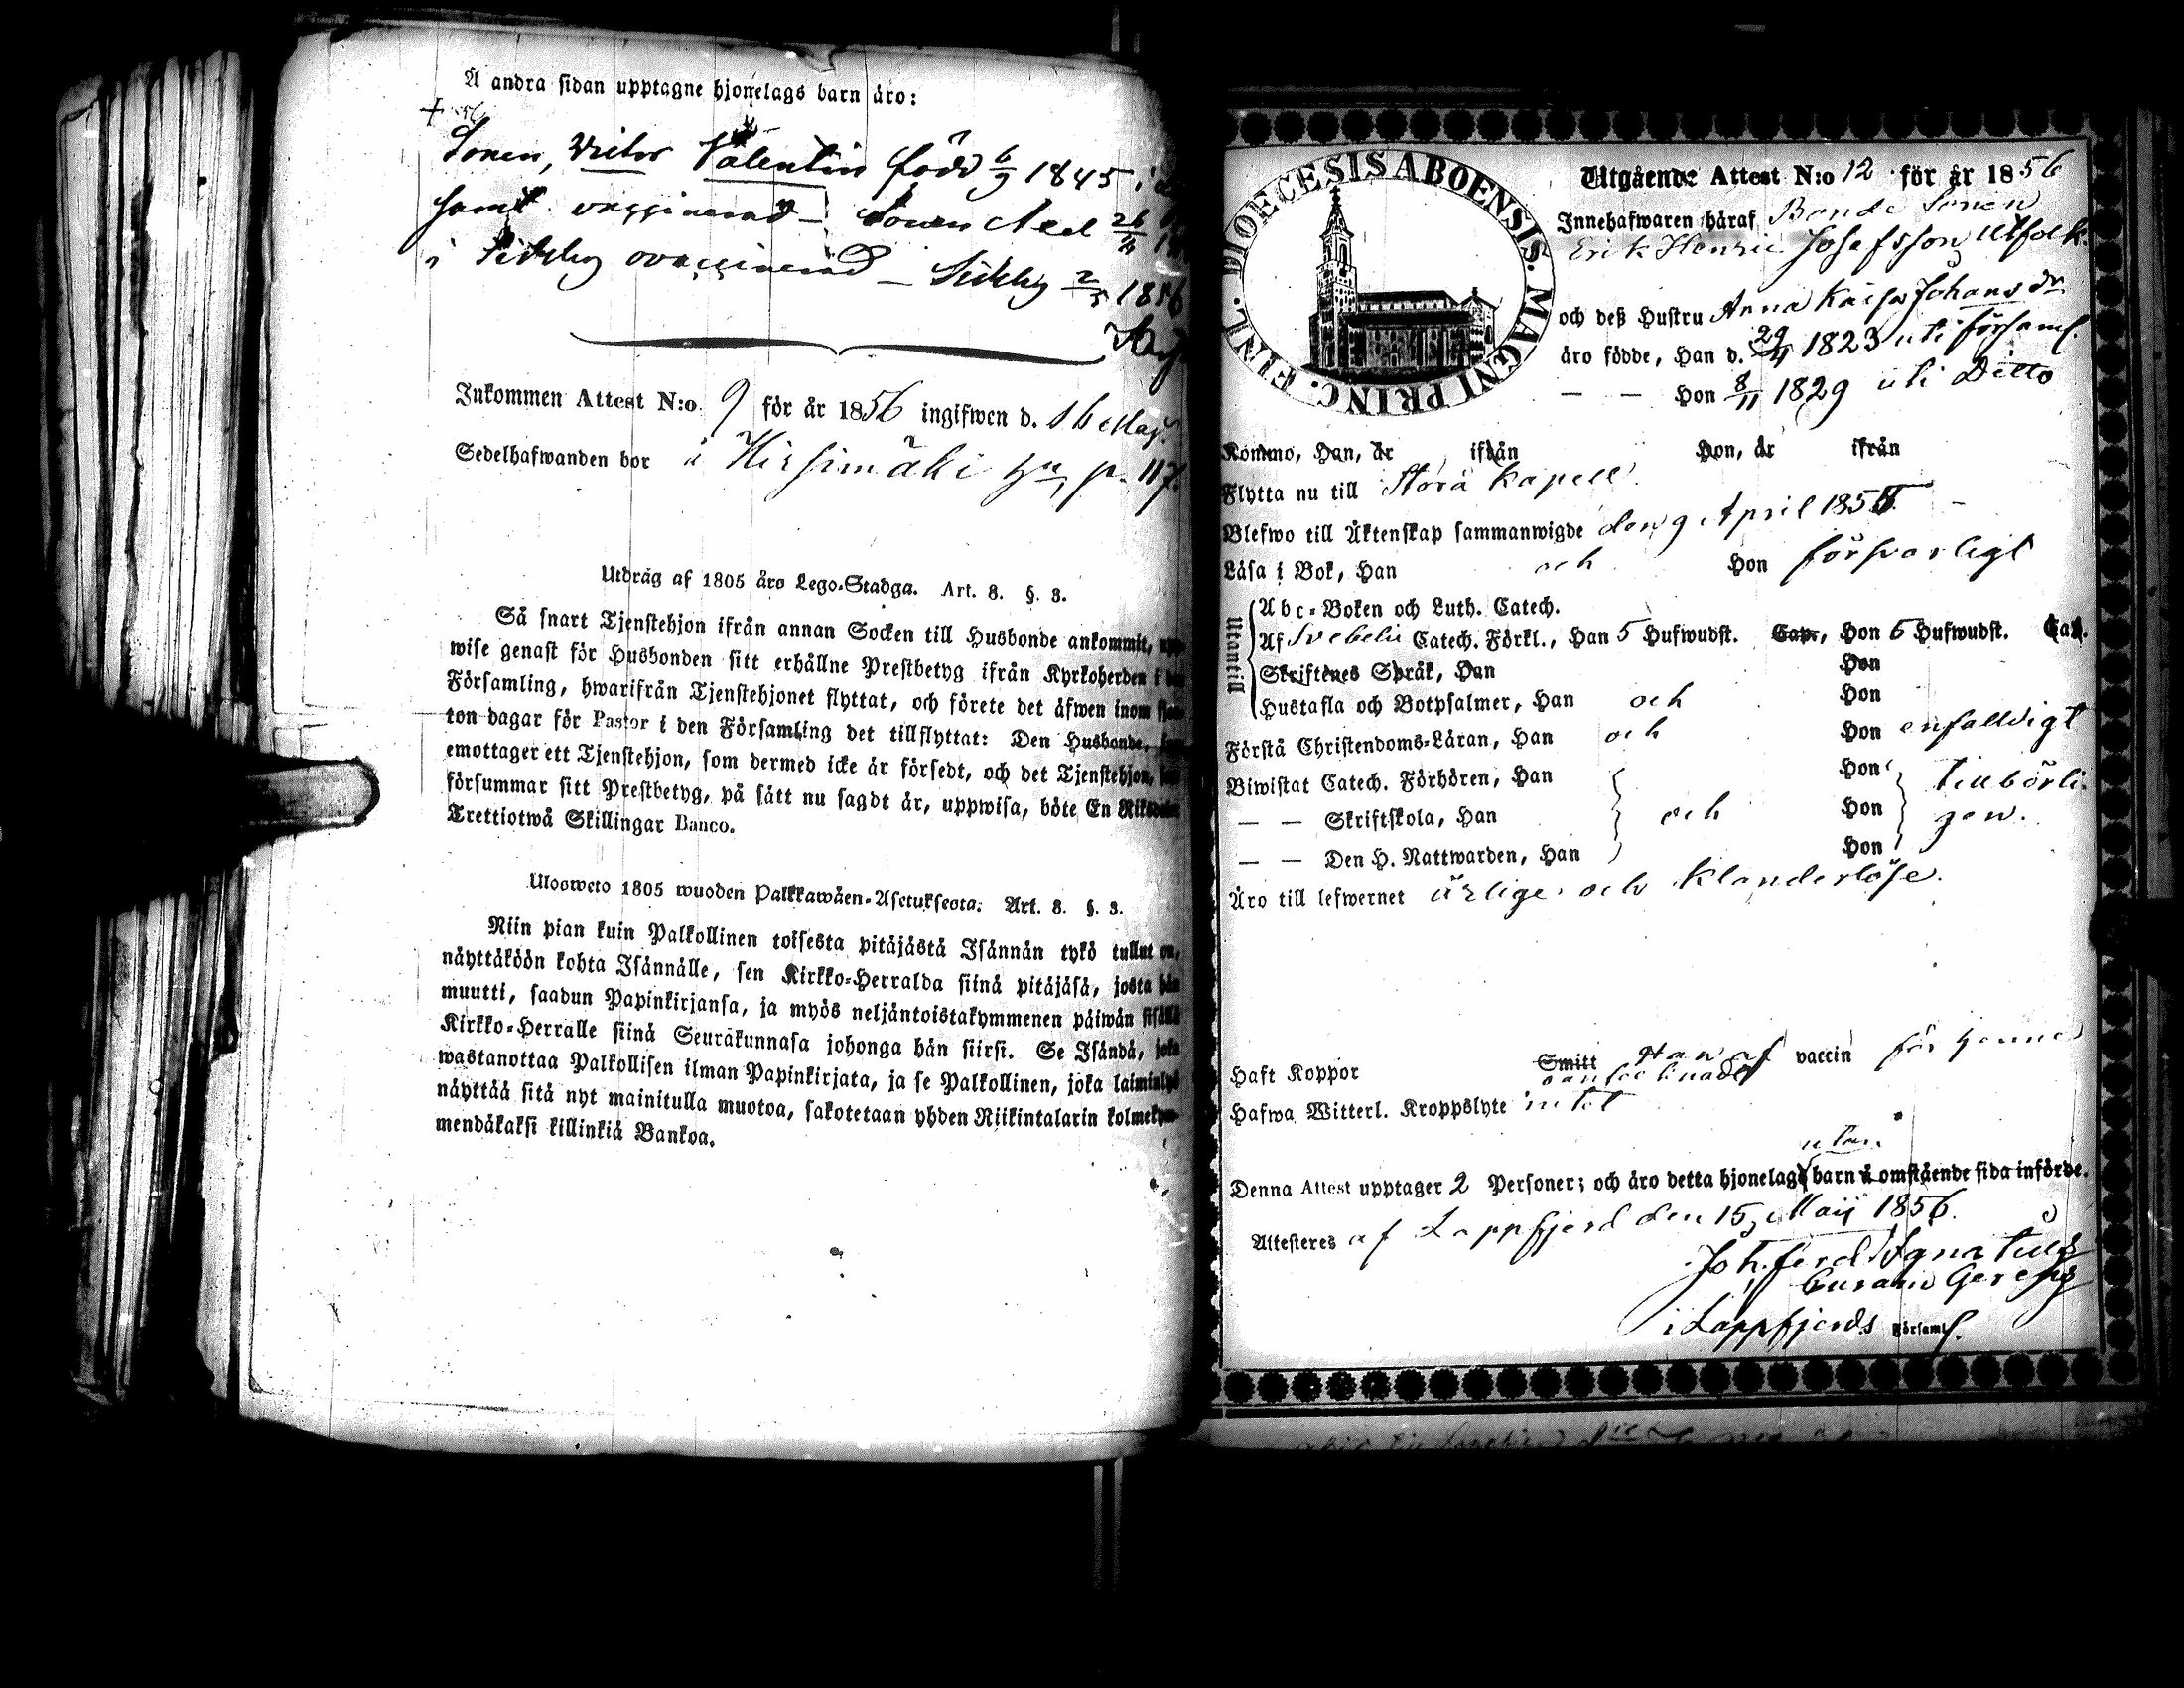 Å andra sidan upptagne hjonelags barn äro:
+ 56
Sonen, Victor Valentin född 6/9 1845 i
samt vaccinerad – Sonen Axel 26/4
i Sideby ovaccinerad – Sideby 2/5 1856
Inkommen Attest N:o 9 för år 1856 ingifwen d. 16 Maj.
Sedelhafwanden bor å Hirsimäki p. 117.
Utdrag af 1805 års Lego-Stadga. Art. 8. §. 3.
Så snart Tjenstehjon ifrån annan Socken till Husbonde ankommit, upp-
wise genast för Husbonden sitt erhållne Prestbetyg ifrån Kyrkoherden i den
Församling, hwarifrån Tjenstehjonet flyttat, och förete det äfwen inom fjor-
ton dagar för Pastor i den Församling det tillflyttat: Den Husbonde, som
emottager ett Tjenstehjon, som dermed icke är försedt, och det Tjenstehjon, som
försummar sitt Prestbetyg, på sätt nu sagdt är, uppwisa, böte En Riksdaler
Trettiotwå Skillingar Banco.
Ulosweto 1805 wuoden Palkkawäen-Asetuksesta. Art. 8. §. 3.
Niin pian kuin Palkollinen toisesta pitäjästä Isännän tykö tullut on,
näyttäköön kohta Isännälle, sen Kirkko-Herralda siinä pitäjäsä, josta hän
muutti, saadun Papinkirjansa, ja myös neljäntoistakymmenen päiwän sisällä
Kirkko-Herralle siinä Seurakunnasa johonga hän siirsi. Se Isändä, joka
wastanottaa Palkollisen ilman Papinkirjata, ja se Palkollinen, joka laiminlyö
näyttää sitä nyt mainitulla muotoa, sakotetaan yhden Riikintalarin kolmekym-
mendäkaksi killinkiä Bankoa.
DIOECESIS ABOENSIS. MAGNI PRINC. FINL.
Utgående Attest N:o 12 för år 1856
Innehafwaren häraf Bonde Sonen
Erik Henric Josefsson Utfolk
och deß Hustru Anna Kaisa Johansdr
äro födde, Han d. 29/4 1823 uti församl.
— — Hon 8/11 1829 uti Ditto
Kommo, Han, år ifrån Hon, år ifrån
Flytta nu till Storå kapell
Blefwo till Äktenskap sammanwigde den 9 April 185
Läsa i Bok, Han och Hon försvarligt
Utantill
Abc-Boken och Luth. Catech.
Af Svebelii Catech. Förkl., Han 5 Hufwudst. Cap., Hon 5 Hufwudst. Cap.
Skriftenes Språk, Han Hon
Hustafla och Botpsalmer, Han och Hon
Förstå Christendoms-Läran, Han och Hon enfalldigt
Biwistat Catech. Förhören, Han Hon tillbörli-
— — Skriftskola, Han och Hon gen.
— — Den H. Nattwarden, Han Hon
Äro till lefwernet ärlige och klanderlöse.
Haft Koppor Smitt Han af vaccin för henne
oantecknadt
Hafwa Witterl. Kroppslyte intet
utan
Denna Attest upptager 2 Personer; och äro detta hjonelags barn å omstående sida införde.
Attesteres af Lappfjerd den 15 Maij 1856.
Joh. Ferd. Ignatius
i Lappfjerds Församl.